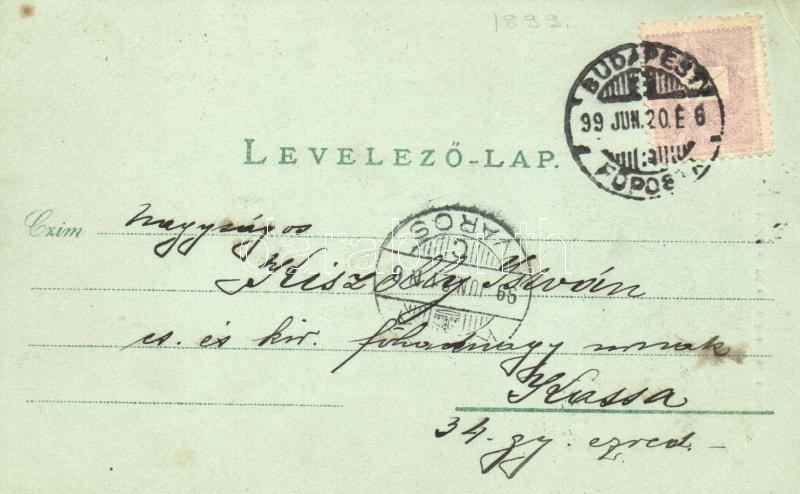 1899.
BUDAPEST
99 JUN. 20. É 6
FŐPOSTA
LEVELEZŐ-LAP.
Czim
Nagyságos
István
cs. és kir. főhadnagy urnak
Kassa
34. gy. ezred. –
VÁROS
99 JUN